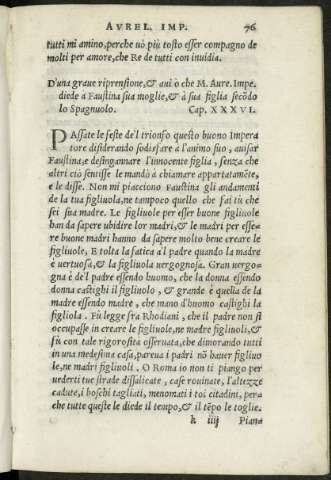 AVREL. IMP. 76
tutti mi amino, perche uò piu tosto esser compagno de
molti per amore, che Re de tutti con inuidia.
D'una graue riprensione, & aui o che M. Aure. Impe.
diede a Faustina sua moglie, & à sua figlia secõdo
lo Spagnuolo. Cap. XXXVI.
PAssate le feste de'l trionfo questo buono Impera
tore disiderando sodisfare à l'animo suo, auisar
Faustina, e desingannare l'innocente figlia, senza che
altri ciò sentisse le mandò à chiamare appartatamẽte,
e le disse. Non mi piacciono Faustina gli andamenti
de la tua figliuola, ne tampoco quello che fai tù che
sei sua madre. Le figliuole per esser buone figliuole
han da sapere ubidire lor madri, & le madri per esse-
re buone madri hanno da sapere molto bene creare le
figliuole, E tolta la fatica al padre quando la madre
è uertuosa, & la figliuola uergognosa. Gran uergo-
gna è de'l padre essendo huomo, che la donna essendo
donna castighi il figliuolo, & grande è quella de la
madre essendo madre, che mano d'huomo castighi la
figliola. Fù legge fra Rhodiani, che il padre non si
occupasse in creare le figliuole, ne madre figliuoli, &
fù con tale rigorosità osseruata, che dimorando tutti
in una medesma casa, pareua i padri nõ hauer figliuo
le, ne madri figliuoli. O Roma io non ti piango per
uederti tue strade dissalicate, case rouinate, l'altezze
cadute, i boschi tagliati, menomati i toi citadini, pera
che tutte queste le diede il tempo, & il tẽpo le toglie.
k iiij Piana